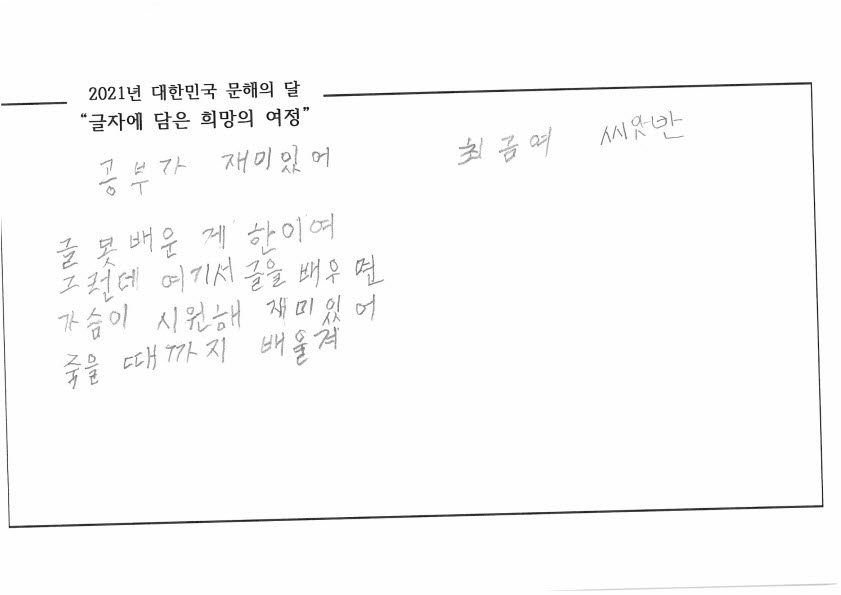 2021년 대한민국 문해의 달
“글자에 담은 희망의 여정”
공부가 재미있어 최금여 씨앗반
글 못 배운 게 한이여
그런데 여기서 글을 배우면
가슴이 시원해 재미있어
죽을 때까지 배울겨